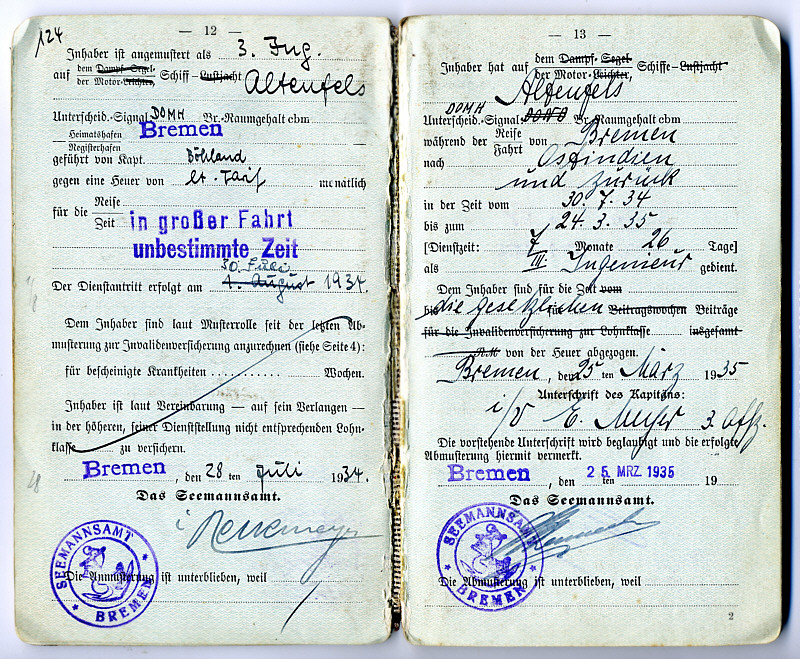 124
— 12 —
Inhaber ist angemustert als 3. Ing.
auf dem Dampf-Segel- Schiff-Lustjacht Altenfels
der Motor-Leichter,
Unterscheid.-Signal DOMH Br.-Raumgehalt cbm
Heimatshafen Bremen
Registerhafen
geführt von Kapt. Böhland
gegen eine Heuer von lt. Tarif monatlich
für die Reise
Zeit in großer Fahrt
unbestimmte Zeit
30. Juli
Der Dienstantritt erfolgt am 1. August 1934.
Dem Inhaber sind laut Musterrolle seit der letzten Ab-
musterung zur Invalidenversicherung anzurechnen (siehe Seite 4):
für bescheinigte Krankheiten ........... Wochen.
Inhaber ist laut Vereinbarung — auf sein Verlangen —
in der höheren, seiner Dienststellung nicht entsprechenden Lohn-
klasse zu versichern.
Bremen, den 28 ten Juli 1934.
Das Seemannsamt.
SEEMANNSAMT
BREMEN
Die Anmusterung ist unterblieben, weil
— 13 —
Inhaber hat auf dem Dampf- Segel- Schiffe-Lustjacht
der Motor-Leichter,
Altenfels
DOMH
Unterscheid.-Signal Br.-Raumgehalt cbm
während der Reise von Bremen
Fahrt
nach Ostindien
und zurück
in der Zeit vom 30. 7. 34
bis zum 24. 3. 35
[Dienstzeit: 7 Monate 26 Tage]
als III. Ingenieur gedient.
Dem Inhaber sind für die Zeit vom
bis die gesetzlichen für Beitragswochen Beiträge
für die Invalidenversicherung zu Lohnklasse insgesamt
R.M von der Heuer abgezogen.
Bremen, den 25 ten März 1935
Unterschrift des Kapitäns:
i/V E. Meyer 3. Offz.
Die vorstehende Unterschrift wird beglaubigt und die erfolgte
Abmusterung hiermit vermerkt.
Bremen, den 25. MRZ 1935
ten 19
Das Seemannsamt.
SEEMANNSAMT
BREMEN
Die Abmusterung ist unterblieben, weil
2